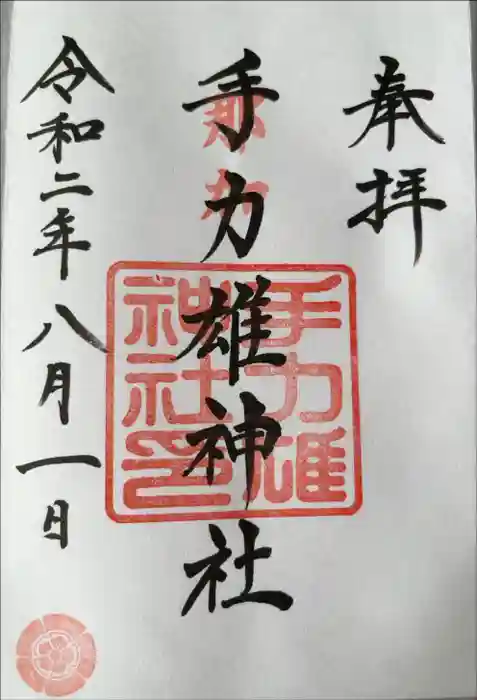 奉拝
手力雄神社
手力雄
神社印
令和二年八月一日